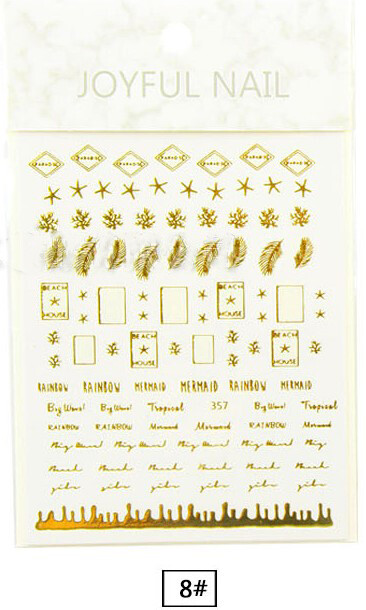 JOYFUL NAIL
PARADISE PARADISE PARADISE PARADISE PARADISE PARADISE PARADISE
BEACH HOUSE BEACH HOUSE
BEACH HOUSE BEACH HOUSE
RAINBOW RAINBOW MERMAID MERMAID RAINBOW MERMAID
Big Wave! Big Wave! Tropical 357 Big Wave! Tropical
RAINBOW RAINBOW Mermaid Mermaid RAINBOW Mermaid
8#